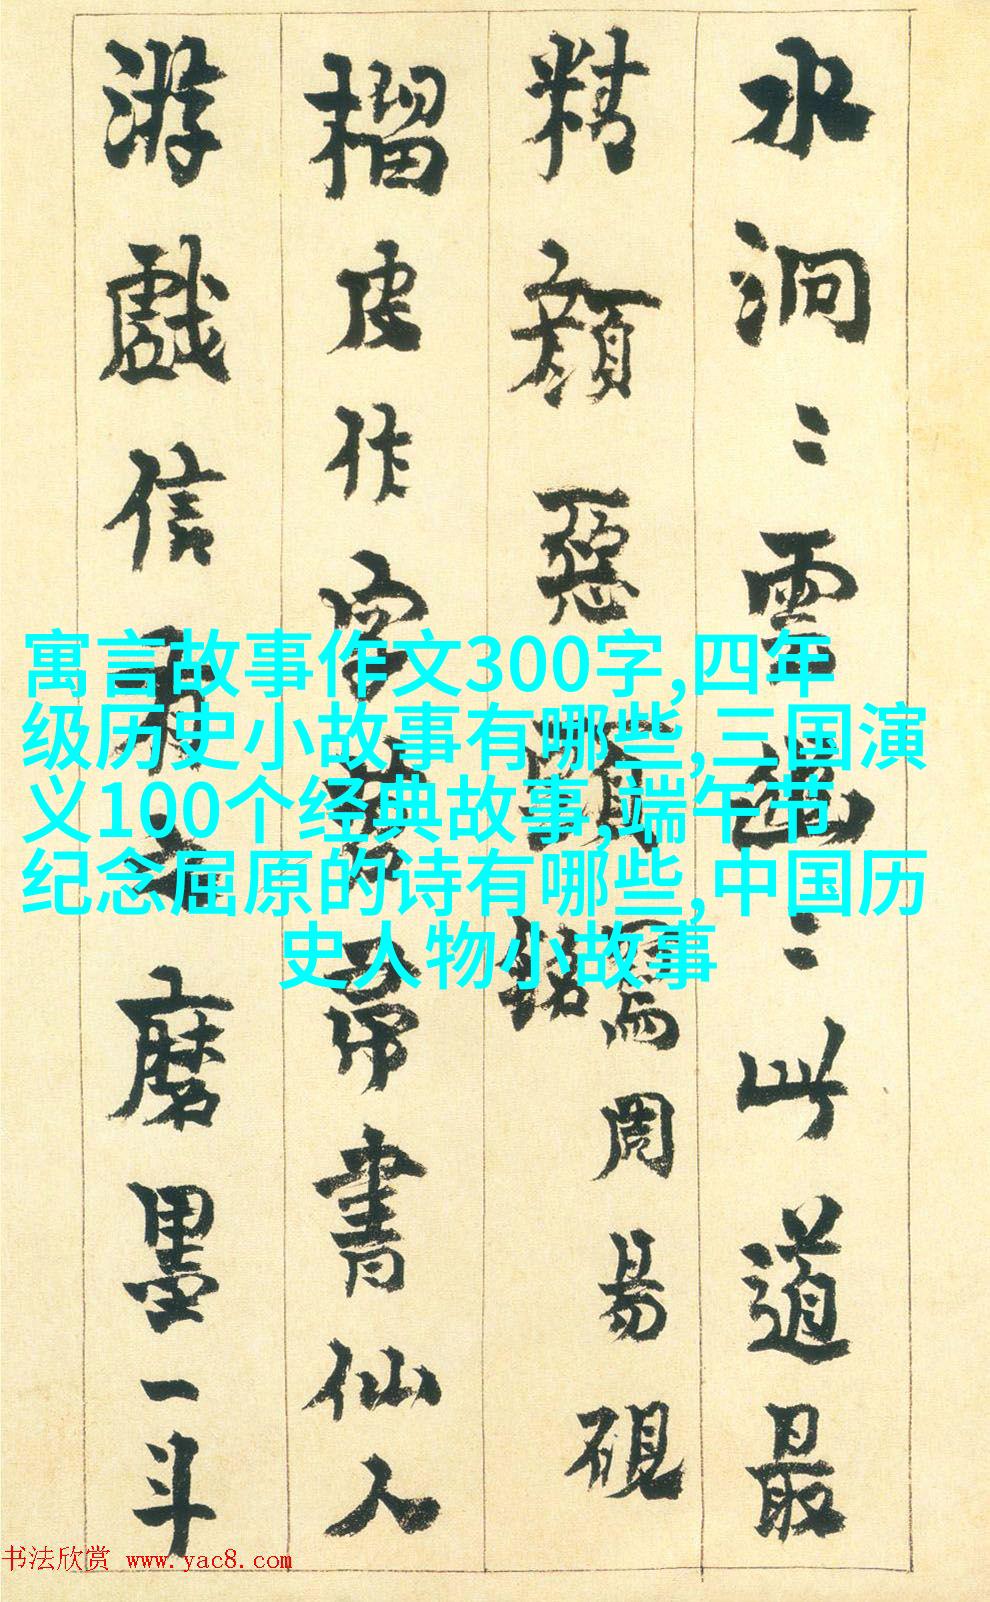 水洞〻雲幽〻此道最
精顏惡寫周易硯
銘
榴皮作字帚書仙人
游戲信磨墨一斗
寓言故事作文300字,四年
级历史小故事有哪些,三国演
义100个经典故事,端午节
纪念屈原的诗有哪些,中国历
史人物小故事
书法欣赏 www.yac8.com